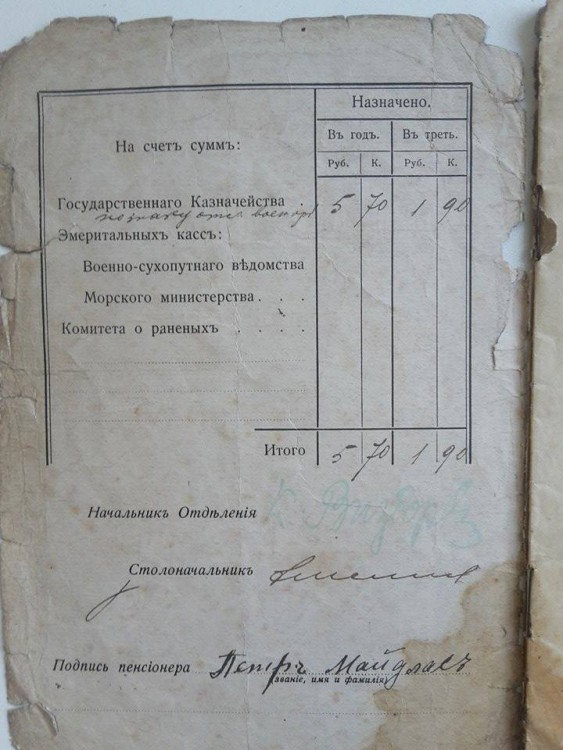 Назначено.
На счетъ суммъ:
Въ годъ. Въ треть.
Руб. К. Руб. К.
Государственнаго Казначейства . 5 70 1 90
по знаку отл. воен. орд.
Эмеритальныхъ кассъ:
Военно-сухопутнаго вѣдомства
Морского министерства . . .
Комитета о раненыхъ . . . .
Итого 5 70 1 90
Начальникъ Отдѣленія
Столоначальникъ
Подпись пенсіонера Петръ Майдлавъ
(званіе, имя и фамилія)